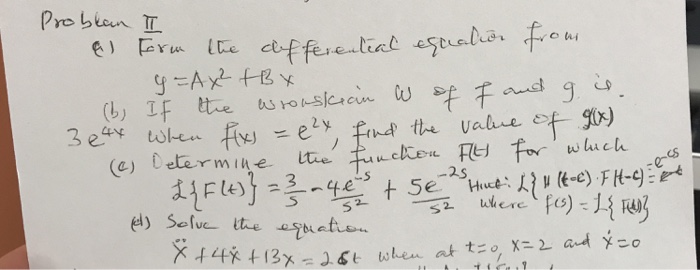 Problem II
a) Form the differential equation from
y = Ax² + Bx
(b) If the wronskian W of f and g is
3e⁴ˣ when f(x) = e²ˣ, find the value of g(x)
(c) Determine the function F(t) for which
ℒ{F(t)} = 3/s - 4e⁻ˢ/s² + 5e⁻²ˢ/s² Hint: ℒ{u(t-c)·F(t-c)} = e⁻ᶜˢ
where f(s) = ℒ{F(t)}
(d) Solve the equation
ẍ + 4ẋ + 13x = 2δt when at t=0, x=2 and ẋ=0